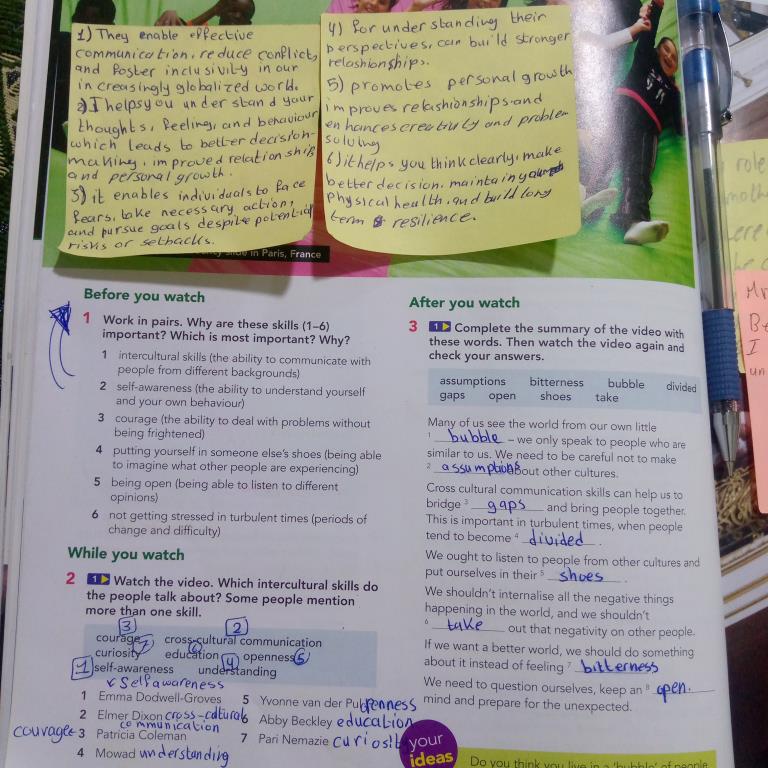 1) They enable effective
communication, reduce conflict,
and foster inclusivity in our
increasingly globalized world.
2) I helps you understand your
thoughts, feeling, and behaviour
which leads to better decision-
making, improved relationship
and personal growth.
3) it enables individuals to face
fears, take necessary action,
and pursue goals despite potential
risks or setbacks.
4) For understanding their
perspectives, can build stronger
relashionships.
5) promotes personal growth
improves relashionships and
enhances creativity and problem
solving
6) it helps you think clearly, make
better decision, maintain
physical health, and build long
term resilience.
in Paris, France
Before you watch
1 Work in pairs. Why are these skills (1–6)
important? Which is most important? Why?
1 intercultural skills (the ability to communicate with
people from different backgrounds)
2 self-awareness (the ability to understand yourself
and your own behaviour)
3 courage (the ability to deal with problems without
being frightened)
4 putting yourself in someone else's shoes (being able
to imagine what other people are experiencing)
5 being open (being able to listen to different
opinions)
6 not getting stressed in turbulent times (periods of
change and difficulty)
While you watch
2 1 Watch the video. Which intercultural skills do
the people talk about? Some people mention
more than one skill.
3 2
courage 7 cross-cultural communication
curiosity education 6 openness 5
1 self-awareness 4 understanding
Selfawareness
1 Emma Dodwell-Groves
2 Elmer Dixon cross-cultural
communication
courage 3 Patricia Coleman
4 Mowad understanding
5 Yvonne van der Pu openness
6 Abby Beckley education
7 Pari Nemazie curiosity
After you watch
3 1 Complete the summary of the video with
these words. Then watch the video again and
check your answers.
assumptions bitterness bubble divided
gaps open shoes take
Many of us see the world from our own little
1 bubble – we only speak to people who are
similar to us. We need to be careful not to make
2 assumptions about other cultures.
Cross cultural communication skills can help us to
bridge 3 gaps and bring people together.
This is important in turbulent times, when people
tend to become 4 divided.
We ought to listen to people from other cultures and
put ourselves in their 5 shoes.
We shouldn't internalise all the negative things
happening in the world, and we shouldn't
6 take out that negativity on other people.
If we want a better world, we should do something
about it instead of feeling 7 bitterness
We need to question ourselves, keep an 8 open.
mind and prepare for the unexpected.
your
ideas
Do you think you live in a 'bubble' of people
role
Be
I
un